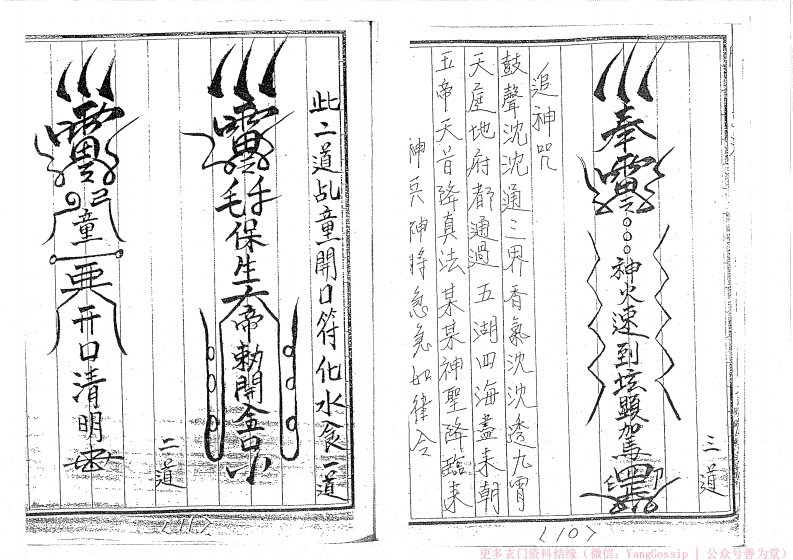 三道
奉
神火速到坛顯駕
追神咒
鼓聲沈沈通三界香氣沈沈透九霄
天庭地府都通過五湖四海盡來朝
五帝天昔降真法某某神聖降臨來
神兵神將急急如律令
<10>
此二道乩童開口符化水食一道
保生大帝敕開金口
二道
童
開口清明
更多玄门资料结缘（微信：YangGossip | 公众号善为堂）